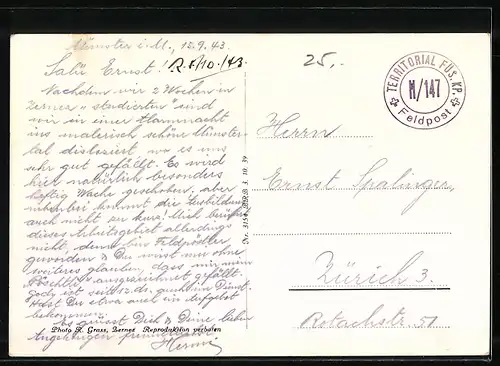 Münster i. M., 12.9.43.
Salü Ernst! R. 8/10./43.
Nachdem wir 2 Wochen in
Zernez „studierten" sind
wir in einer Hammnacht
ins malerisch schöne Münster-
tal disloziert, wo es uns
sehr gut gefällt. Es wird
hier natürlich besonders
heftig Wache geschoben, aber
nebenbei kommt die Ausbildung
auch nicht zu kurz! Mich berührt
dieses Arbeitsgebiet allerdings
nicht, denn bin Feldpöstler
geworden & Du wirst mir ohne
weiteres glauben, dass mir mein
"Pöschtli" ausgezeichnet gefällt.
Hast Du etwa auch ein Aufgebot
bekommen?
Es grüsst Dich & Deine lieben
Angehörigen
Photo R. Grass, Zernez Reproduktion verboten
Nr. 3154 3. 10. 39
25.-
TERRITORIAL FÜS. KP.
M/147
Feldpost
Herrn
Ernst Spalinger,
Zürich 3.
Rotachstr. 51